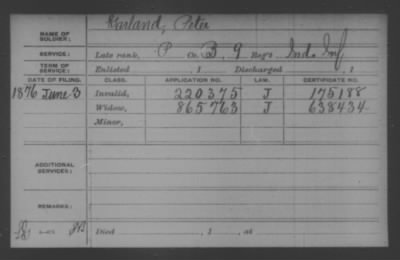 NAME OF SOLDIER: Garland, Peter
SERVICE: Late rank, P Co. B, 9 Reg't Ind. Inf
TERM OF SERVICE: Enlisted , 1 Discharged , 1
DATE OF FILING. CLASS. APPLICATION NO. LAW. CERTIFICATE NO.
1876 June 3 Invalid, 220375 J 175188
Widow, 865763 J 638434
Minor,
ADDITIONAL SERVICES:
REMARKS:
Died , 1 , at